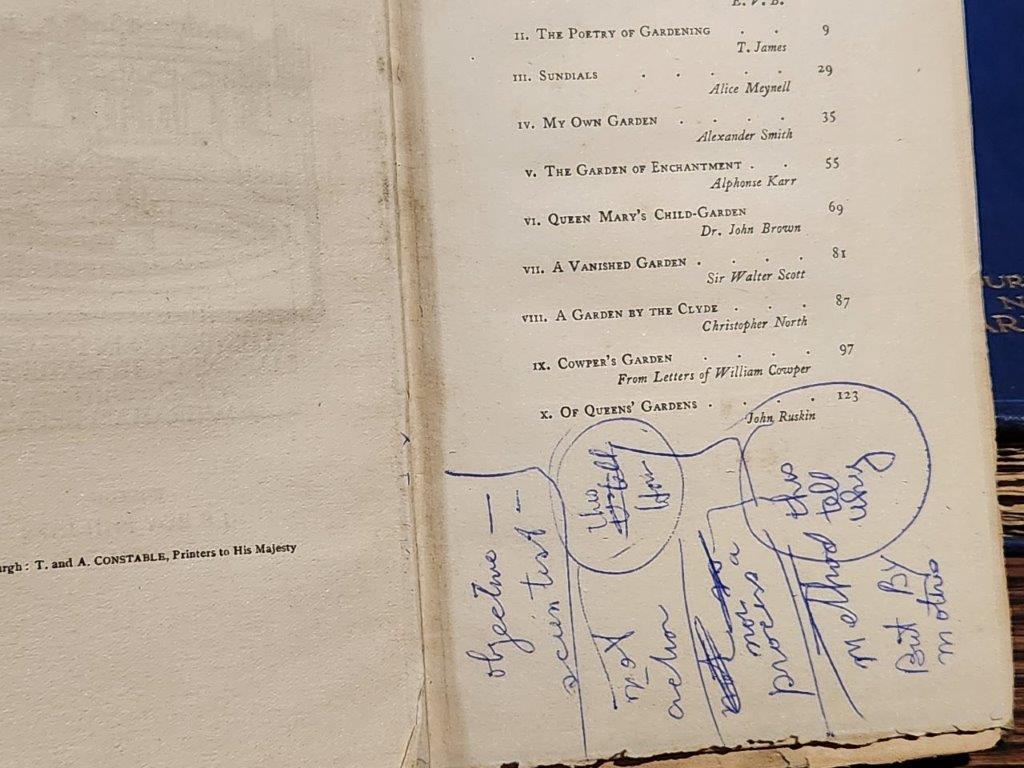 E. V. B.
II. THE POETRY OF GARDENING . . 9
T. James
III. SUNDIALS . . . . . 29
Alice Meynell
IV. MY OWN GARDEN . . . . 35
Alexander Smith
V. THE GARDEN OF ENCHANTMENT . . 55
Alphonse Karr
VI. QUEEN MARY'S CHILD-GARDEN 69
Dr. John Brown
VII. A VANISHED GARDEN . . . . 81
Sir Walter Scott
VIII. A GARDEN BY THE CLYDE . . . 87
Christopher North
IX. COWPER'S GARDEN . . . . 97
From Letters of William Cowper
X. OF QUEENS' GARDENS . . . . 123
John Ruskin
rgh: T. and A. CONSTABLE, Printers to His Majesty
objective —
scientist —
this
tell
How
not
action
nor
process
this
tell
why
method
But By
motive
UR
N
AR